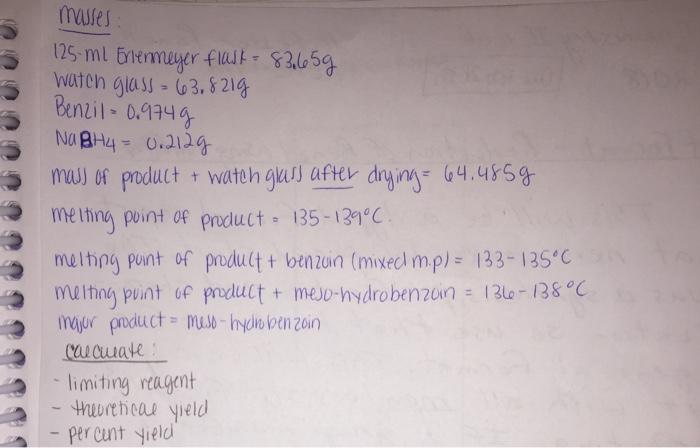 masses:
125-ml Erlenmeyer flask = 83.65g
watch glass = 63.821g
Benzil = 0.974g
NaBH4 = 0.212g
mass of product + watch glass after drying = 64.485g
melting point of product = 135-139°C.
melting point of product + benzoin (mixed m.p) = 133-135°C
melting point of product + meso-hydrobenzoin = 136-138°C
major product = meso-hydrobenzoin
calculate:
- limiting reagent
- theoretical yield
- percent yield